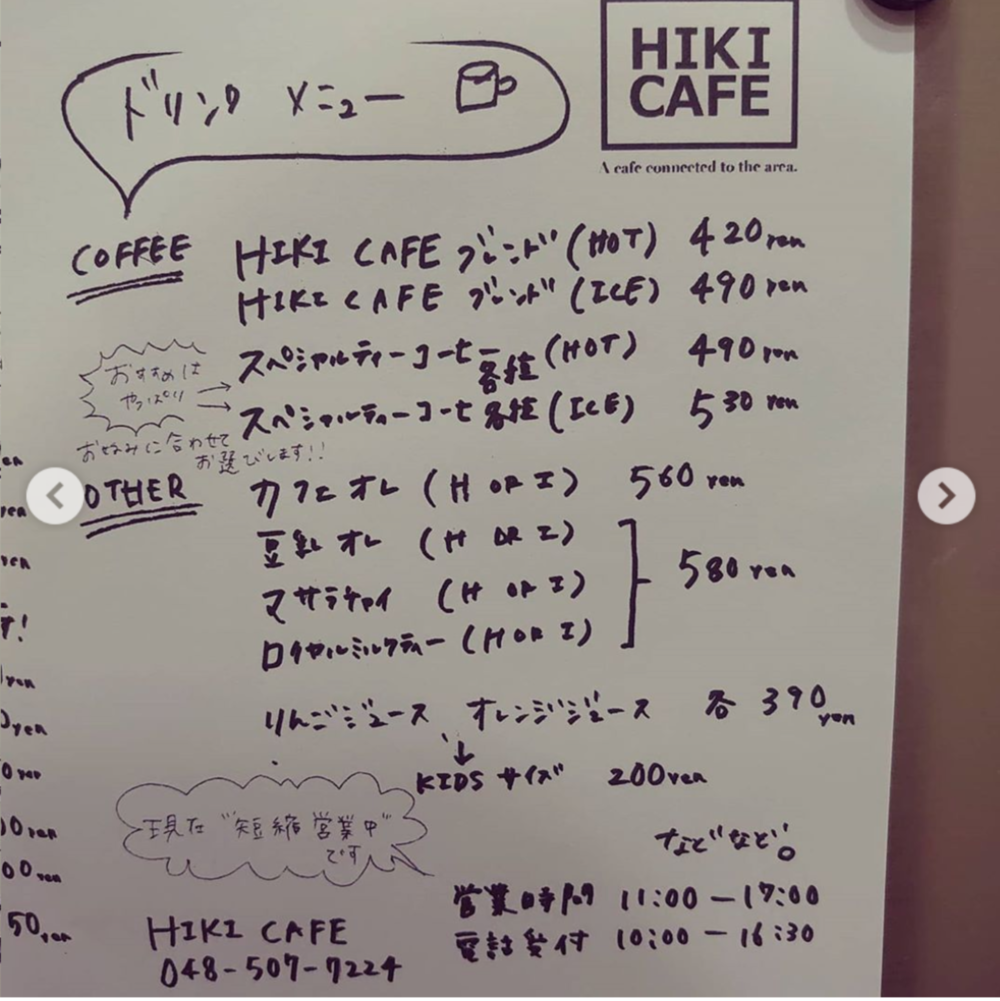 HIKI
CAFE
A cafe connected to the area.
ドリンク メニュー
COFFEE HIKI CAFE ブレンド (HOT) 420 yen
HIKI CAFE ブレンド (ICE) 490 yen
スペシャルティーコーヒー各種 (HOT) 490 yen
スペシャルティーコーヒ各種 (ICE) 530 yen
おすすめは
やっぱり
お好みに合わせて
お選びします!!
OTHER カフェオレ (H OR I) 560 yen
豆乳オレ (H OR I)
マサラチャイ (H OR I)
580 yen
ロイヤルミルクティー (H OR I)
りんごジュース オレンジジュース 各 390 yen
↓
KIDS サイズ 200 yen
現在"短縮営業中"
です
などなど。
営業時間 11:00 - 17:00
電話受付 10:00 - 16:30
HIKI CAFE
048-507-7224